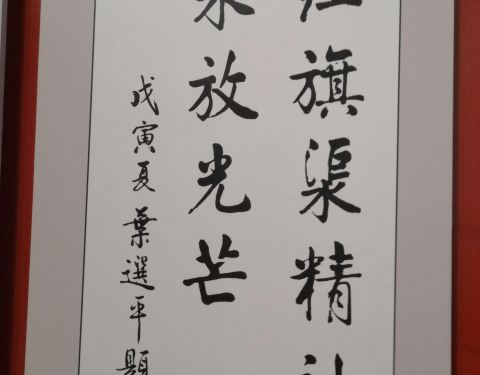 旗渠精
放光芒
戊寅夏葉選平題